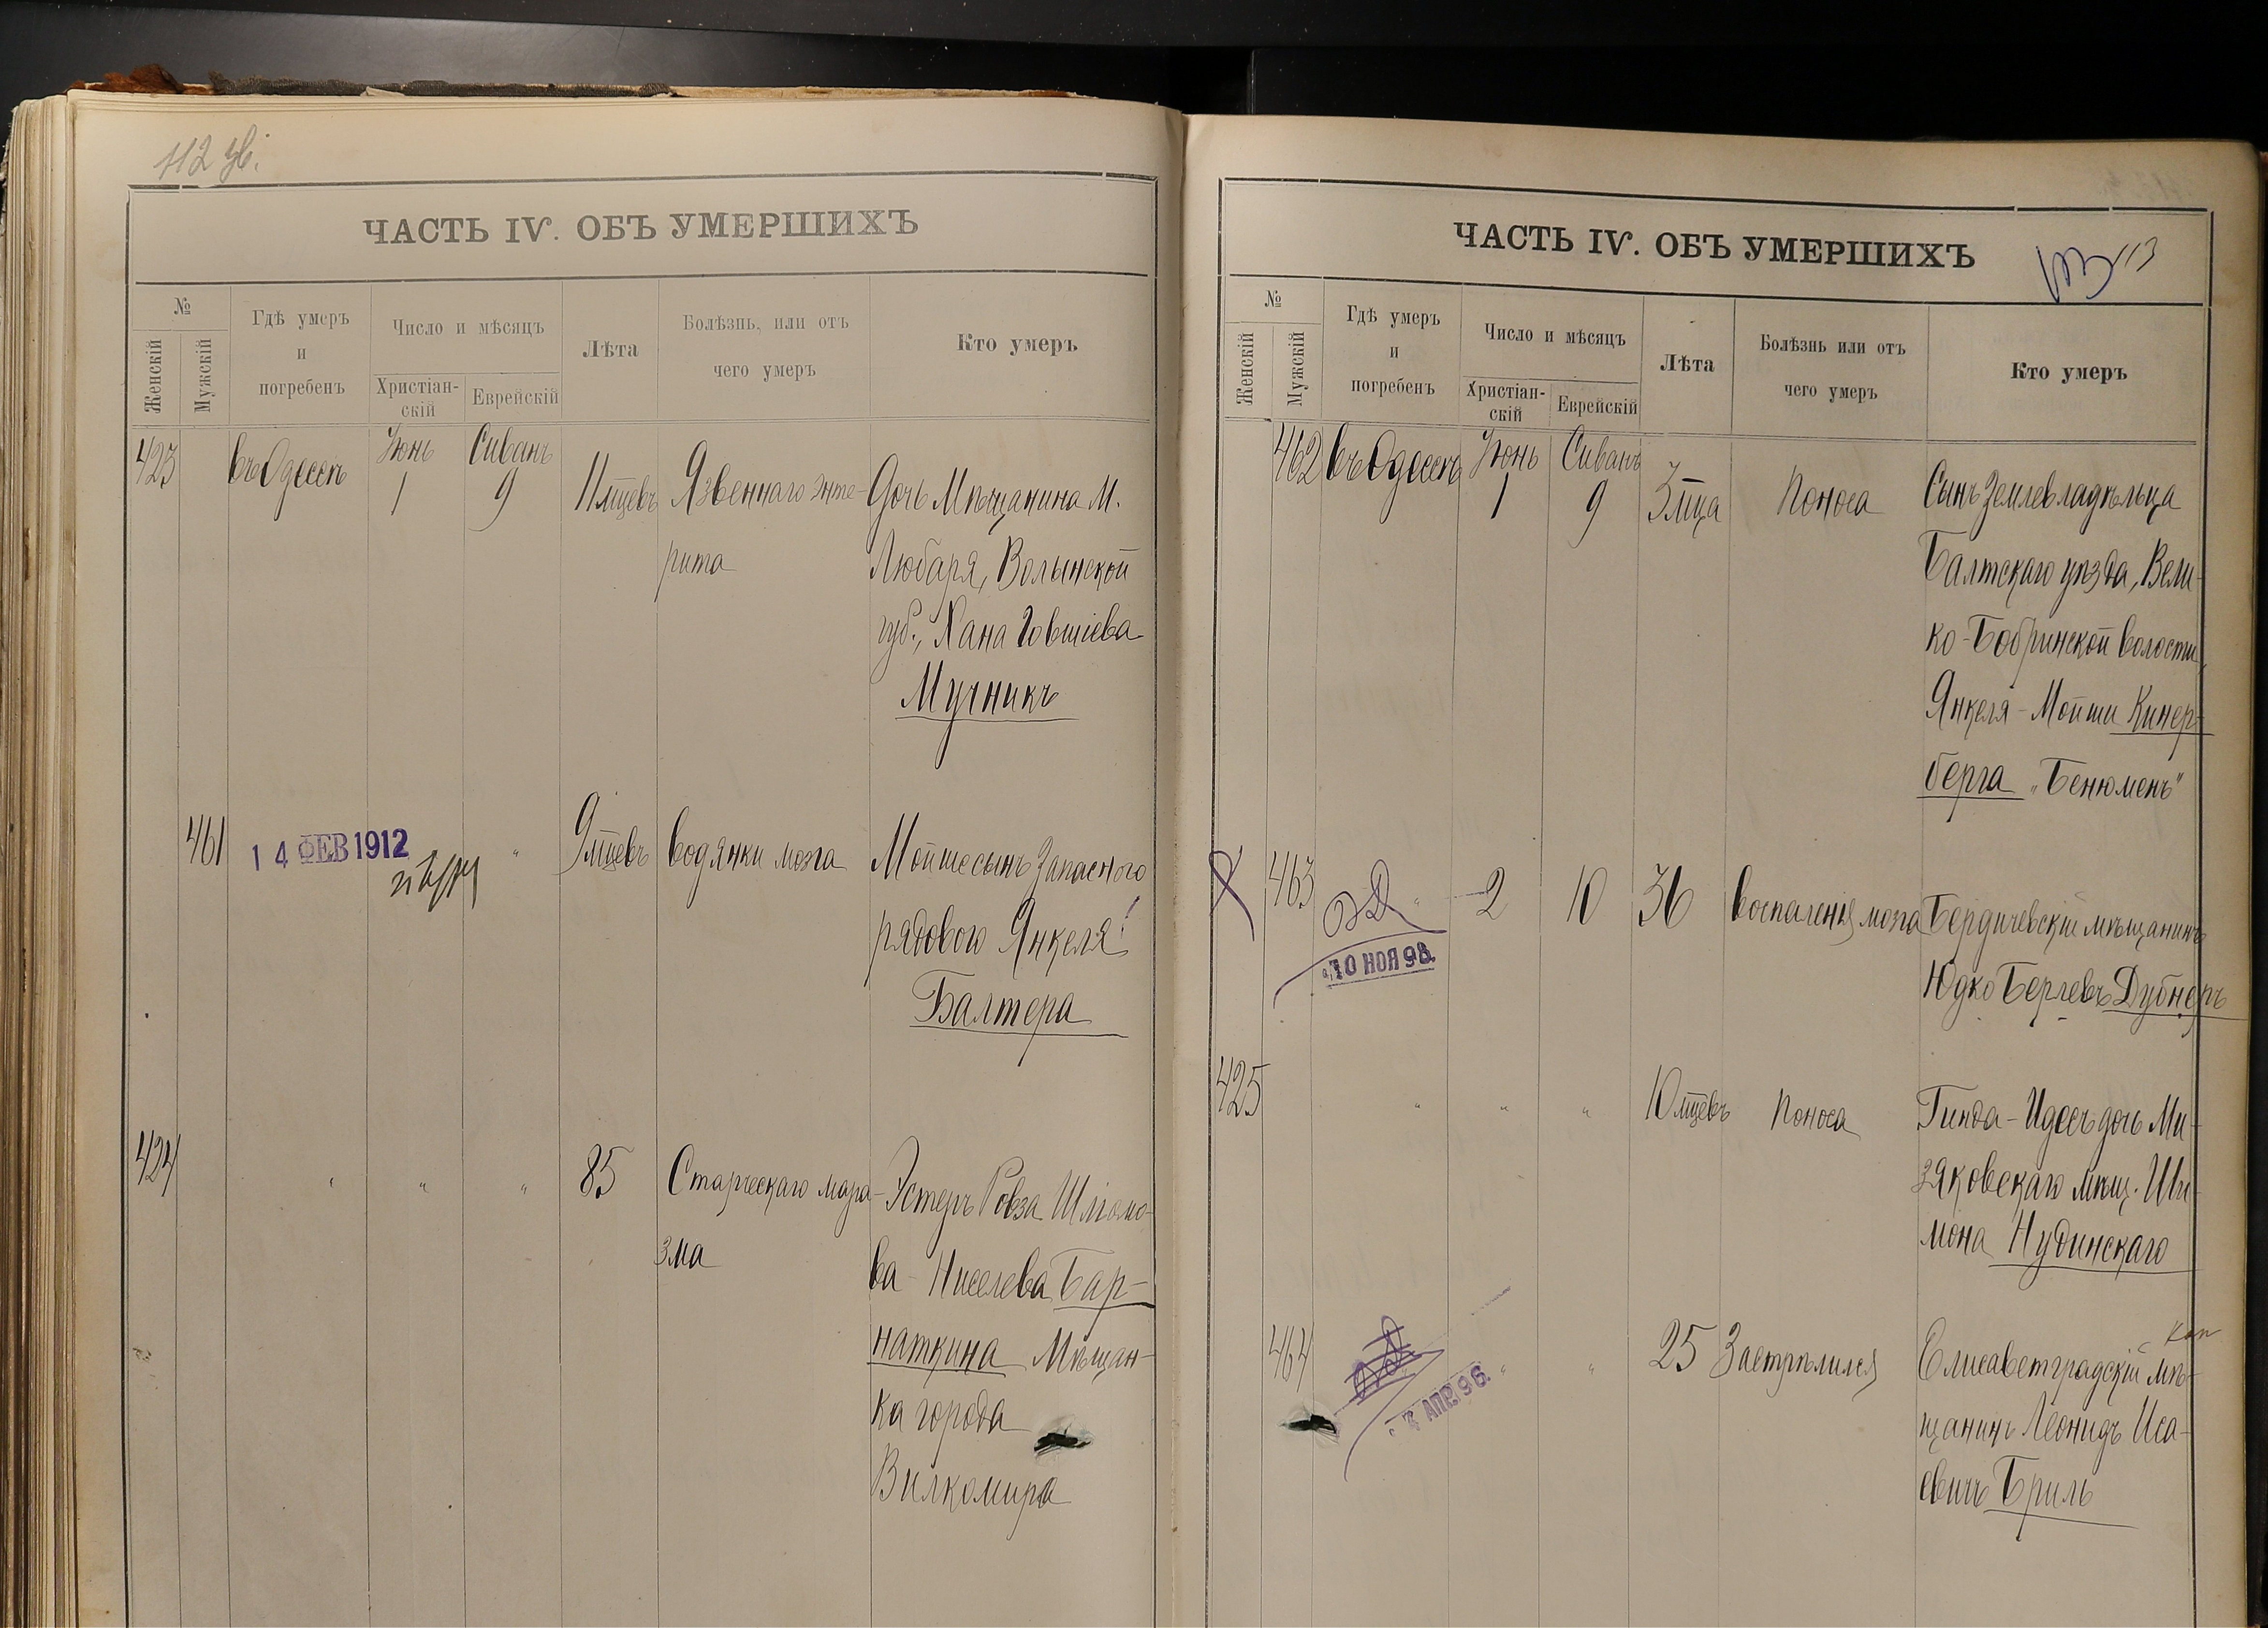 112 зв.
ЧАСТЬ IV. ОБЪ УМЕРШИХЪ
№
Женскій
Мужскій
Гдѣ умеръ
и
погребенъ
Число и мѣсяцъ
Христіан-
скій
Еврейскій
Лѣта
Болѣзнь, или отъ
чего умеръ
Кто умеръ
423
въ Одессѣ
Іюнь
1
Сиванъ
9
11 мцевъ
Язвеннаго энте-
рита
Дочь Мѣщанина М.
Любаря, Волынской
губ., Хана Говшіева
Мучникъ
461
14 ФЕВ 1912
"
9 мцевъ
водянки мозга
Мойше сынъ Запасного
рядового Янкеля
Балтера
424
"
"
"
85
Старческаго мара-
зма
Эстеръ Ровза Шліомо-
ва - Ниселева Бар-
наткина Мѣщан-
ка города
Вилкомира
ЧАСТЬ IV. ОБЪ УМЕРШИХЪ
113
№
Женскій
Мужскій
Гдѣ умеръ
и
погребенъ
Число и мѣсяцъ
Христіан-
скій
Еврейскій
Лѣта
Болѣзнь или отъ
чего умеръ
Кто умеръ
462
въ Одессѣ
Іюнь
1
Сиванъ
9
3 мца
Поноса
Сынъ Землевладѣльца
Балтскаго уѣзда, Вели-
ко-Бобринской волости,
Янкеля-Мойши Кинер-
берга „Бенюменъ"
463
"
2
10
36
воспаленія мозга
Бердичевскій мѣщанинъ
Юдко Берлевъ Дубнеръ
10 НОЯ 98.
425
"
"
"
10 мцевъ
Поноса
Гинда-Идесъ дочь Ми-
зяковскаго мѣщ. Ши-
мона Нудинскаго
464
"
"
25
Застрѣлился
Елисаветградскій мѣ-
щанинъ Леонидъ Иса-
евичъ Бриль
АПР. 96.